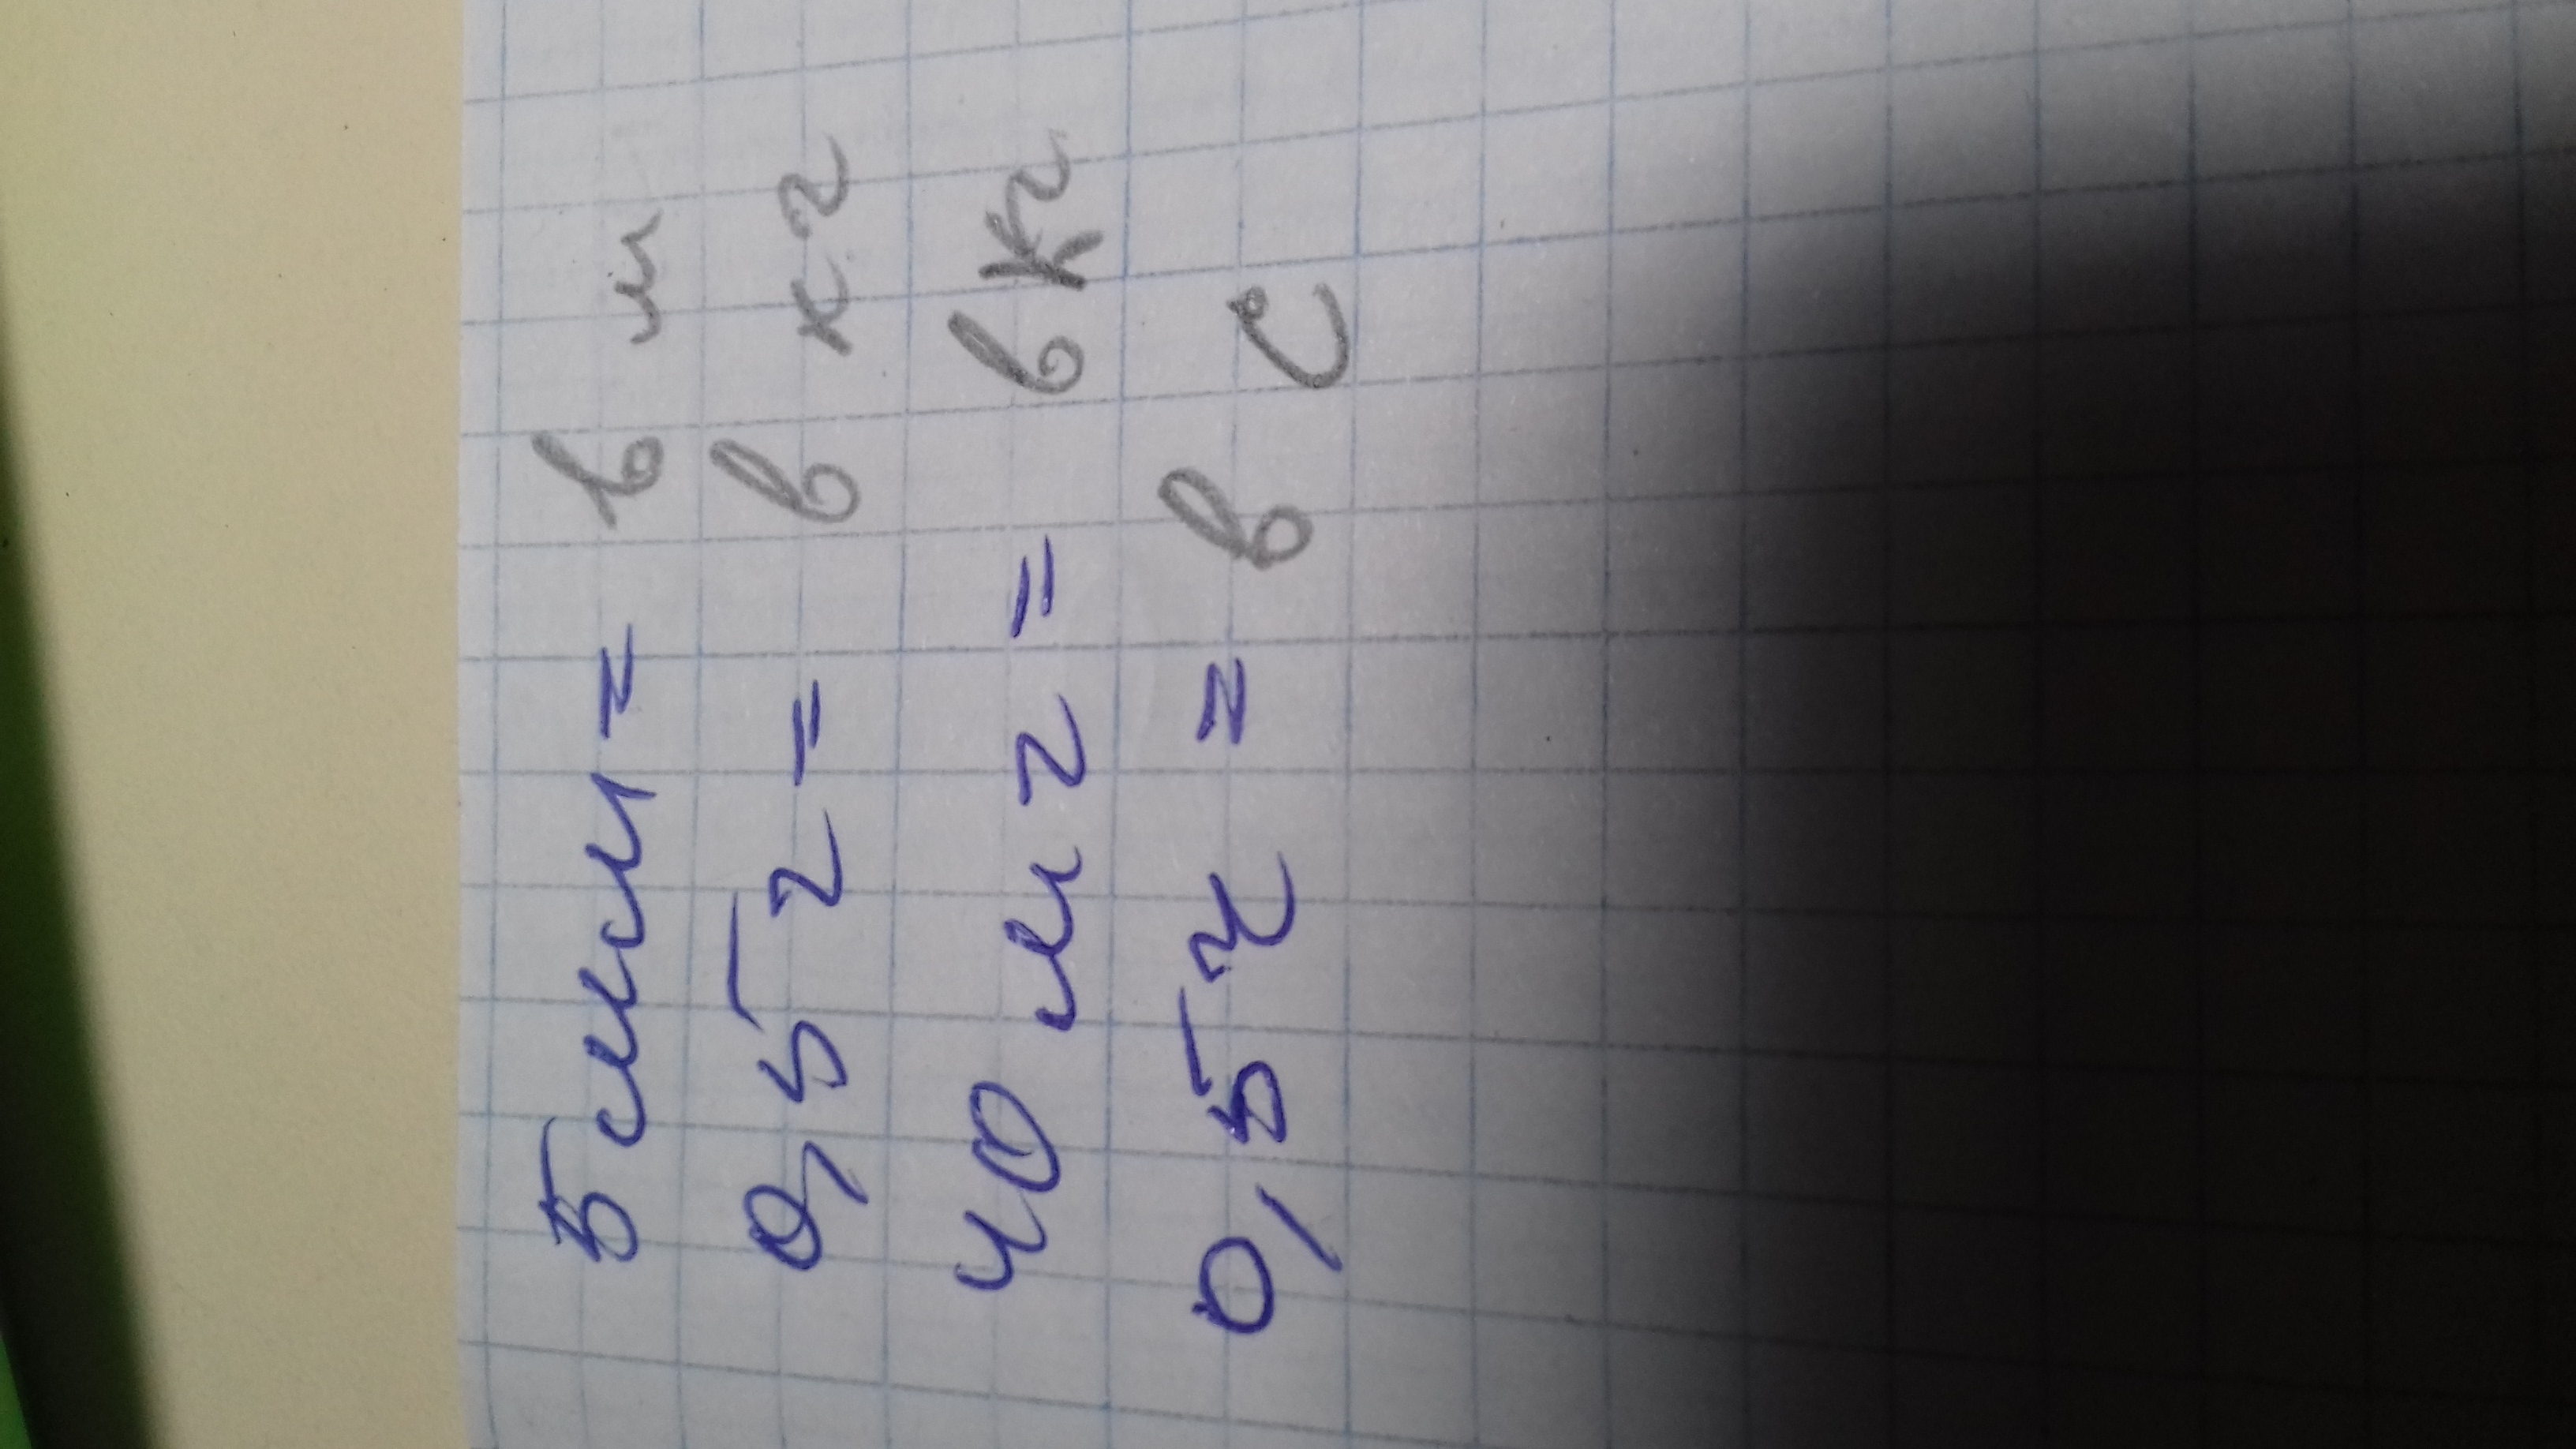 5 мм = в м
0,5 г = в кг
40 мг = в кг
0,5 ч = в с